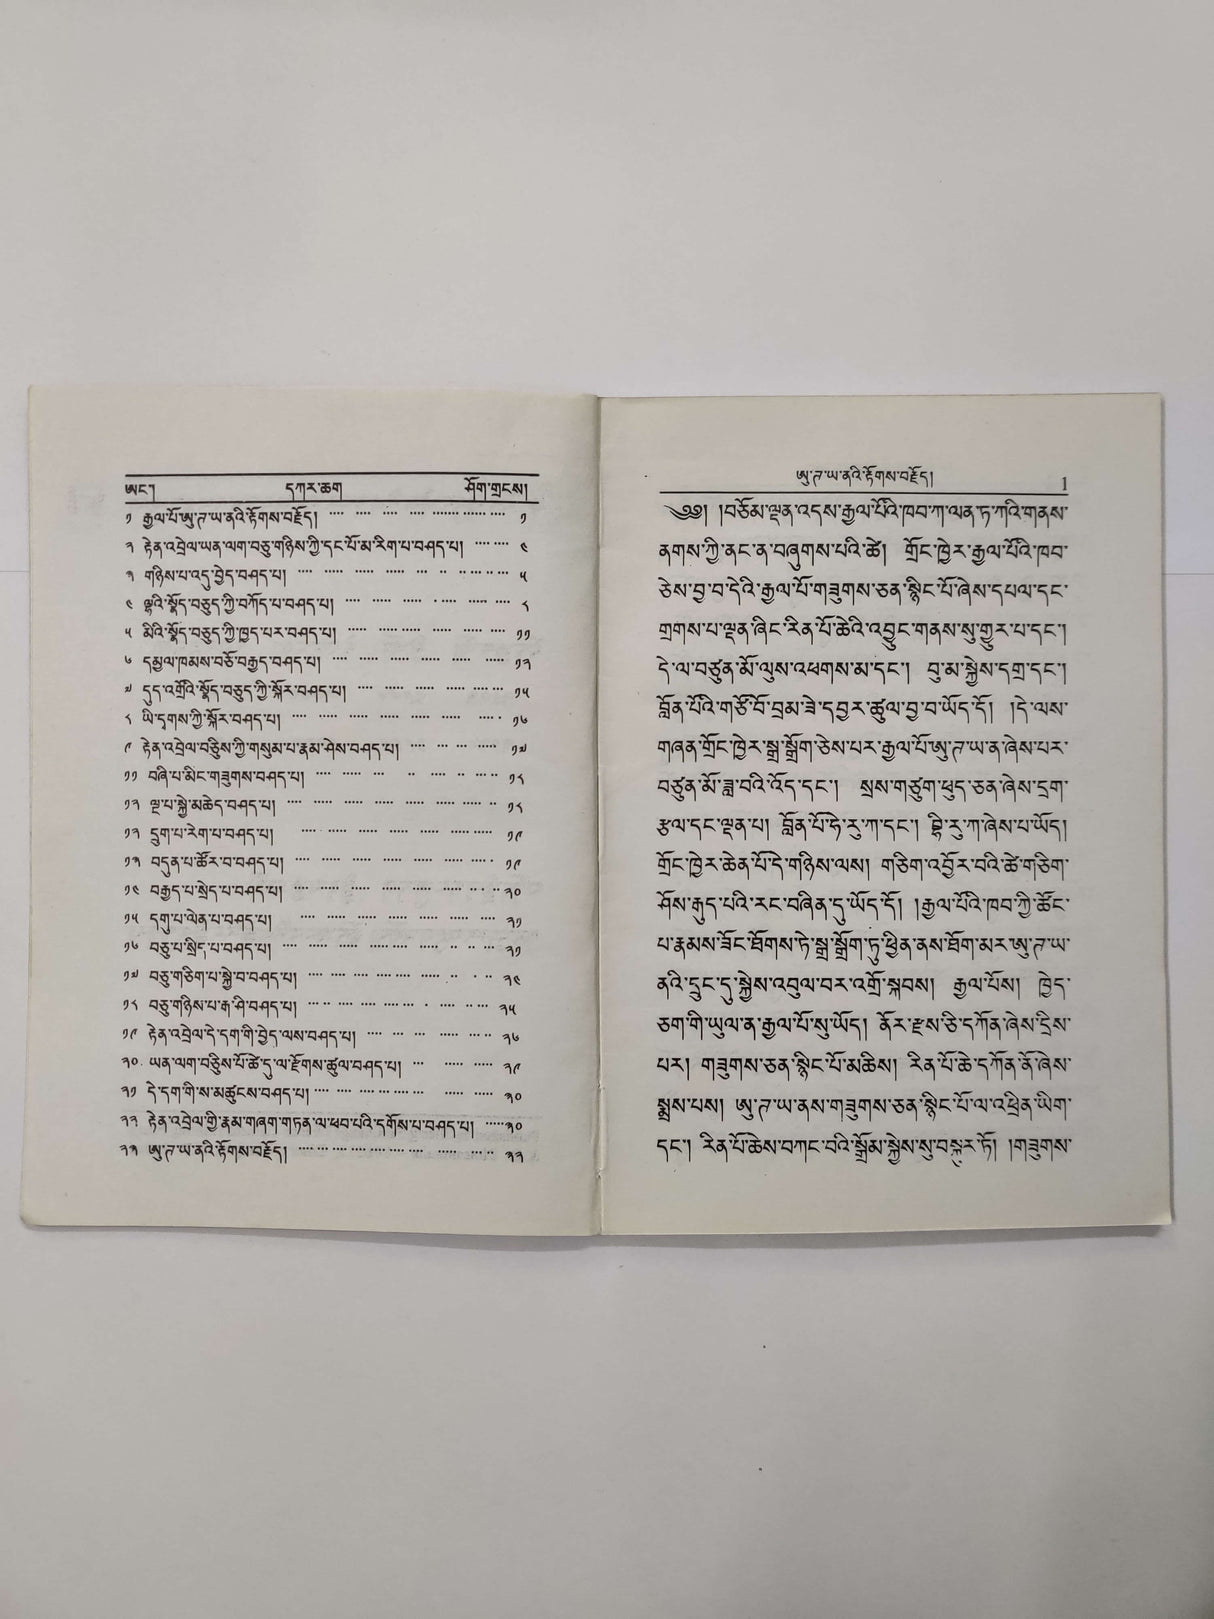 ཨང་། དཀར་ཆག ཤོག་གྲངས།
༡ རྒྱལ་པོ་ཨུ་ཏ་ཡ་ནའི་རྟོགས་བརྗོད། ༡
༢ རྟེན་འབྲེལ་ཡན་ལག་བཅུ་གཉིས་ཀྱི་དང་པོ་མ་རིག་པ་བཤད་པ། ༤
༣ གཉིས་པ་འདུ་བྱེད་བཤད་པ། ༥
༤ ལྷའི་སྣོད་བཅུད་ཀྱི་བཀོད་པ་བཤད་པ། ༨
༥ མིའི་སྣོད་བཅུད་ཀྱི་ཁྱད་པར་བཤད་པ། ༡༡
༦ དམྱལ་ཁམས་བཅོ་བརྒྱད་བཤད་པ། ༡༢
༧ དུད་འགྲོའི་སྣོད་བཅུད་ཀྱི་སྐོར་བཤད་པ། ༡༥
༨ ཡི་དྭགས་ཀྱི་སྐོར་བཤད་པ། ༡༦
༩ རྟེན་འབྲེལ་བཅིུས་ཀྱི་གསུམ་པ་རྣམ་ཤེས་བཤད་པ། ༡༧
༡༡ བཞི་པ་མིང་གཟུགས་བཤད་པ། ༡༨
༡༢ ལྔ་པ་སྐྱེ་མཆེད་བཤད་པ། ༡༨
༡༢ དྲུག་པ་རེག་པ་བཤད་པ། ༡༩
༡༣ བདུན་པ་ཚོར་བ་བཤད་པ། ༡༩
༡༤ བརྒྱད་པ་སྲེད་པ་བཤད་པ། ༢༠
༡༥ དགུ་པ་ལེན་པ་བཤད་པ། ༢༡
༡༦ བཅུ་པ་སྲིད་པ་བཤད་པ། ༢༡
༡༧ བཅུ་གཅིག་པ་སྐྱེ་བ་བཤད་པ། ༢༤
༡༨ བཅུ་གཉིས་པ་རྒ་ཤི་བཤད་པ། ༢༥
༡༩ རྟེན་འབྲེལ་དེ་དག་གི་བྱེད་ལས་བཤད་པ། ༢༦
༢༠ ཡན་ལག་བཅིུས་པོ་ཚེ་དུ་ལ་རྫོགས་ཚུལ་བཤད་པ། ༢༩
༢༡ དེ་དག་གི་ས་མཚུངས་བཤད་པ། ༣༠
༢༢ རྟེན་འབྲེལ་གྱི་རྣམ་གཞག་གཏན་ལ་ཕབ་པའི་དགོས་པ་བཤད་པ། ༣༠
༢༣ ཨུ་ཏ་ཡ་ནའི་རྟོགས་བརྗོད། ༣༢
ཨུ་ཏ་ཡ་ནའི་རྟོགས་བརྗོད། 1
༄༅། །བཅོམ་ལྡན་འདས་རྒྱལ་པོའི་ཁབ་ཀ་ལན་ཏ་ཀའི་གནས་
ནགས་ཀྱི་ནང་ན་བཞུགས་པའི་ཚེ། གྲོང་ཁྱེར་རྒྱལ་པོའི་ཁབ་
ཅེས་བྱ་བ་དེའི་རྒྱལ་པོ་གཟུགས་ཅན་སྙིང་པོ་ཞེས་དཔལ་དང་
གྲགས་པ་ལྡན་ཞིང་རིན་པོ་ཆེའི་འབྱུང་གནས་སུ་གྱུར་པ་དང་།
དེ་ལ་བཙུན་མོ་ལུས་འཕགས་མ་དང་། བུ་མ་སྐྱེས་དགྲ་དང་།
བློན་པོའི་གཙོ་བོ་བྲམ་ཟེ་དབྱར་ཚུལ་བྱ་བ་ཡོད་དོ། །དེ་ལས་
གཞན་གྲོང་ཁྱེར་སྒྲ་སྒྲོག་ཅེས་པར་རྒྱལ་པོ་ཨུ་ཏ་ཡ་ན་ཞེས་པར་
བཙུན་མོ་ཟླ་བའི་འོད་དང་། སྲས་གཙུག་ཕུད་ཅན་ཞེས་དྲག་
རྩལ་དང་ལྡན་པ། བློན་པོ་ཧེ་རུ་ཀ་དང་། བྷི་རུ་ཀ་ཞེས་པ་ཡོད།
གྲོང་ཁྱེར་ཆེན་པོ་དེ་གཉིས་ལས། གཅིག་འབྱོར་བའི་ཚེ་གཅིག་
ཤོས་རྒུད་པའི་རང་བཞིན་དུ་ཡོད་དོ། །རྒྱལ་པོའི་ཁབ་ཀྱི་ཚོང་
པ་རྣམས་ཟོང་ཐོགས་ཏེ་སྒྲ་སྒྲོག་ཏུ་ཕྱིན་ནས་ཐོག་མར་ཨུ་ཏ་ཡ་
ནའི་དྲུང་དུ་སྐྱེས་འབུལ་བར་འགྲོ་སྐབས། རྒྱལ་པོས། ཁྱེད་
ཅག་གི་ཡུལ་ན་རྒྱལ་པོ་སུ་ཡོད། ནོར་རྫས་ཅི་དཀོན་ཞེས་དྲིས་
པར། གཟུགས་ཅན་སྙིང་པོ་མཆིས། རིན་པོ་ཆེ་དཀོན་ནོ་ཞེས་
སྨྲས་པས། ཨུ་ཏ་ཡ་ནས་གཟུགས་ཅན་སྙིང་པོ་ལ་འཕྲིན་ཡིག་
དང་། རིན་པོ་ཆེས་བཀང་བའི་སྒྲོམ་སྐྱེས་སུ་བསྐུར་ཏོ། །གཟུགས་